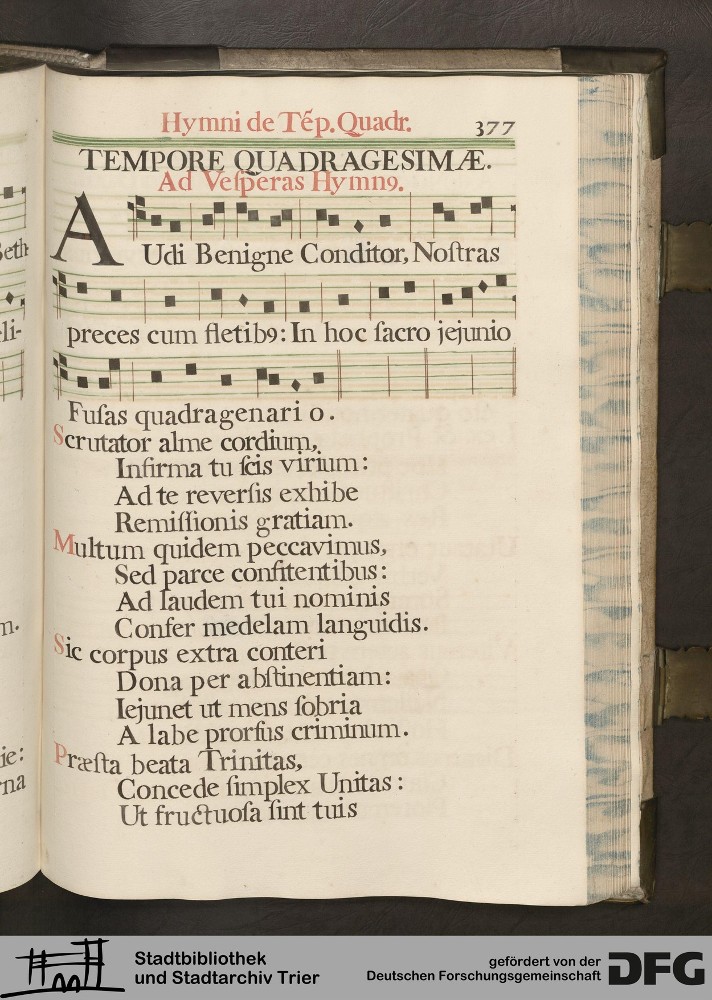 Hymni de Tẽp. Quadr. 377
TEMPORE QUADRAGESIMÆ.
Ad Veſperas Hymnꝯ.
AUdi Benigne Conditor, Noſtras
preces cum fletibꝯ: In hoc ſacro jejunio
Fuſas quadragenario.
Scrutator alme cordium,
Infirma tu ſcis virium:
Ad te reverſis exhibe
Remiſſionis gratiam.
Multum quidem peccavimus,
Sed parce confitentibus:
Ad laudem tui nominis
Confer medelam languidis.
Sic corpus extra conteri
Dona per abſtinentiam:
Iejunet ut mens ſobria
A labe prorſus criminum.
Præſta beata Trinitas,
Concede ſimplex Unitas:
Ut fructuoſa ſint tuis
Stadtbibliothek
und Stadtarchiv Trier
gefördert von der
Deutschen Forschungsgemeinschaft
DFG